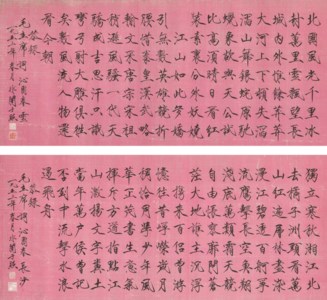 北國風光千里冰
封萬里雪飄望長
城內外惟餘莽莽
大河上下頓失滔
滔山舞銀蛇原馳
蠟象欲與天公試
比高須晴日看紅
裝素裹分外妖嬈
江山如此多嬌
引無數英雄競折
腰惜秦皇漢武略
輸文采唐宗宋祖
稍遜風騷一代天
驕成吉思汗只識
彎弓射大鵰俱往
矣數風流人物還
看今朝
恭錄
毛主席詞沁園春雪
獨立寒秋湘江北
去橘子洲頭看萬
山紅遍層林盡染
漫江碧透百舸爭
流鷹擊長空魚翔
淺底萬類霜天競
自由悵寥廓問蒼
茫大地誰主沉浮
攜來百侶曾游
憶往昔崢嶸歲月
稠恰同學少年風
華正茂書生意氣
揮斥方遒指點江
山激揚文字糞土
當年萬戶侯曾記
否到中流擊水浪
遏飛舟
恭錄
毛主席詞沁園春長沙